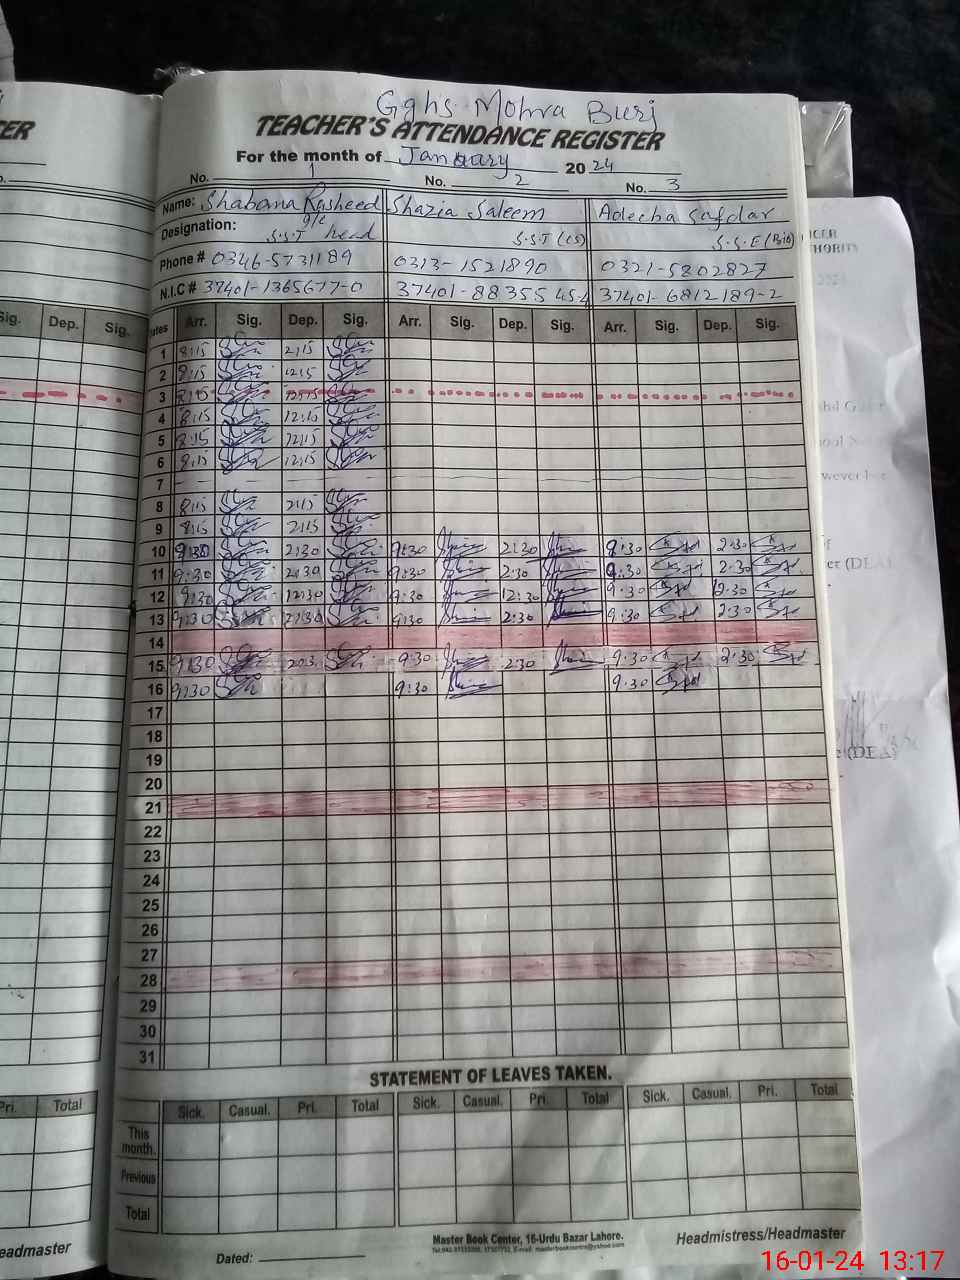 Gghs Mohra Burj
TEACHER'S ATTENDANCE REGISTER
For the month of January 2024
No. 1 No. 2 No. 3
Name: Shabana Rasheed Shazia Saleem Adeeba Safdar
Designation: S.S.T head S.S.T (CS) S.S.E (Bio)
Phone # 0346-5731189 0313-1521890 0321-5802827
N.I.C # 37401-1365677-0 37401-88355 37401-6812189-2
Sig. Dep. Sig. Arr. Sig. Dep. Sig. Arr. Sig. Dep. Sig. Arr. Sig. Dep. Sig.
1 8:15 2:15
2 8:15 12:15
3 8:15
4 8:15 12:15
5 8:15 12:15
6 8:15 12:15
7
8 8:15 2:15
9 8:15 2:15
10 9:30 2:30 9:30 2:30 9:30 2:30
11 9:30 2:30 9:30 2:30 9:30 2:30
12 9:30 12:30 9:30 12:30 9:30 12:30
13 9:30 2:30 9:30 2:30 9:30 2:30
14
15 9:30 9:30 2:30 9:30 2:30
16 9:30 9:30 9:30
17
18
19
20
21
22
23
24
25
26
27
28
29
30
31
STATEMENT OF LEAVES TAKEN.
Pri. Total Sick. Casual. Pri. Total Sick. Casual. Pri. Total Sick. Casual. Pri. Total
This
month.
Previous
Total
Master Book Center, 16-Urdu Bazar Lahore.
Headmistress/Headmaster
Dated:
16-01-24 13:17